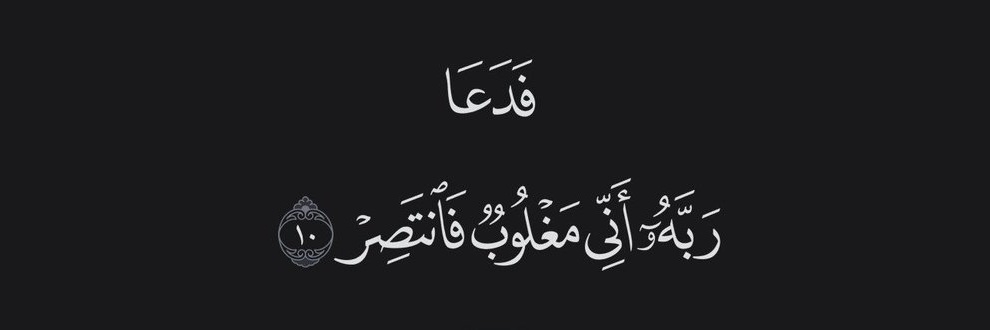 فَدَعَا
رَبَّهُۥٓ أَنِّي مَغْلُوبٞ فَٱنتَصِرۡ ١٠